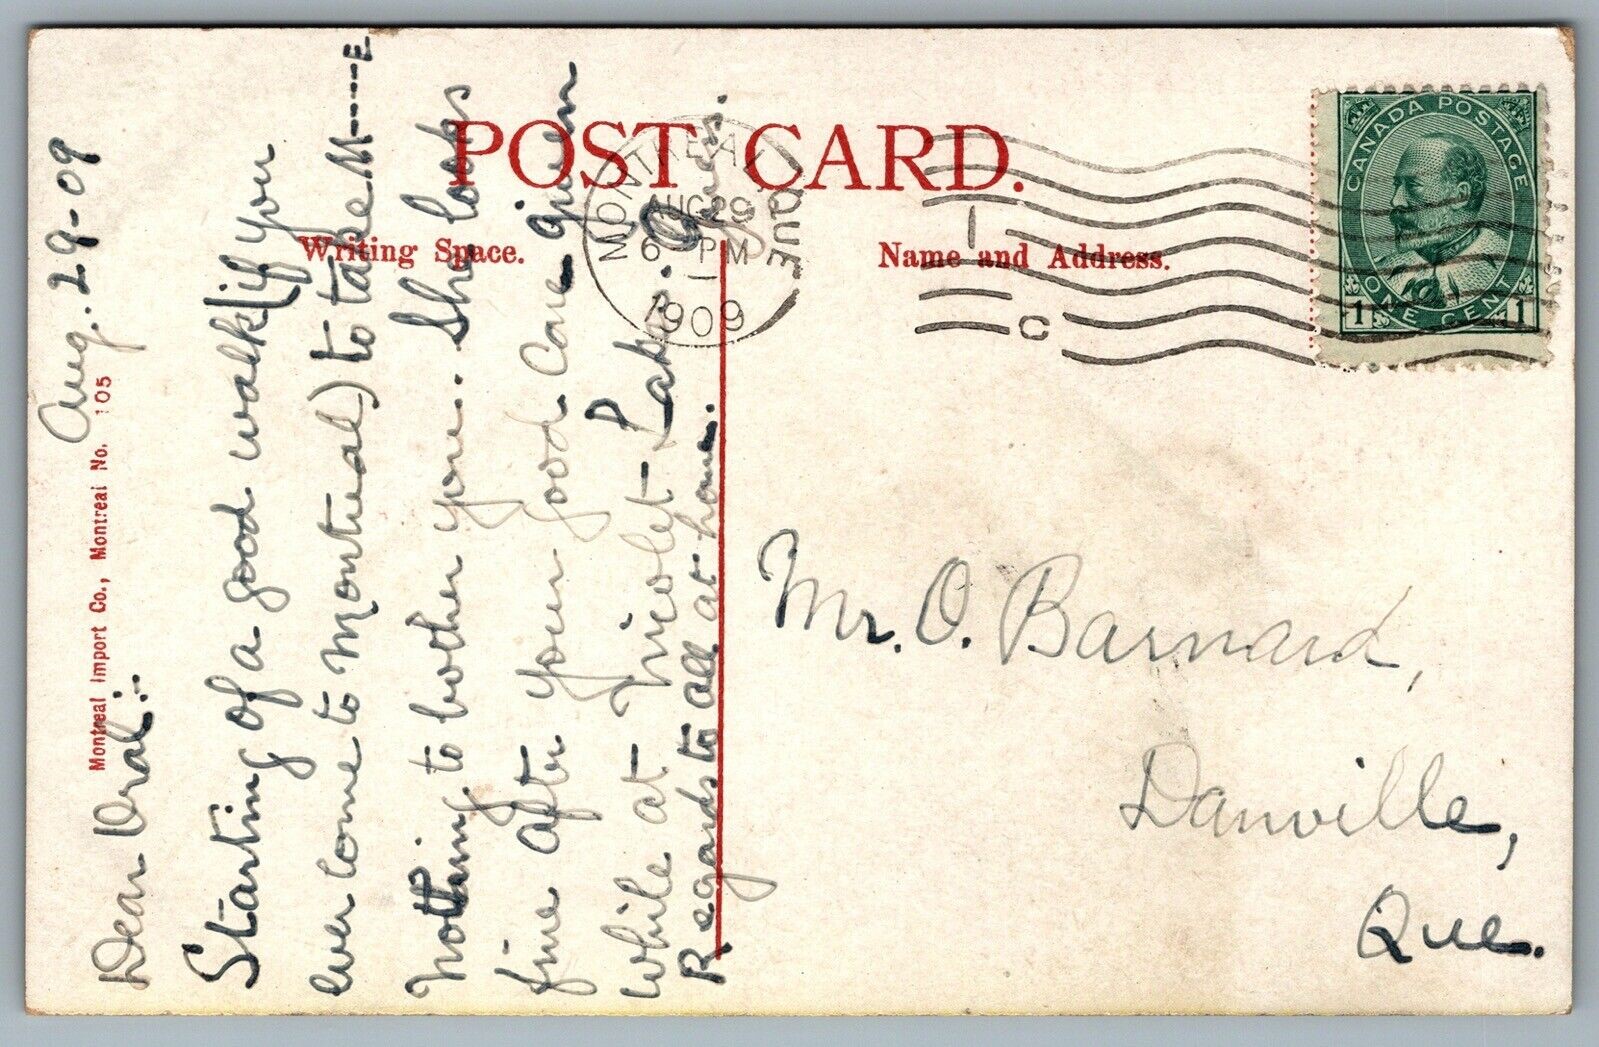 POST CARD.
Writing Space.
Name and Address.
Montreal Import Co., Montreal No. 105
MONTREAL
AUG 29
6 PM
1
1909
QUE
1
C
CANADA POSTAGE
1 ONE CENT 1
Aug. 29-09
Dear Oral:-
Starting of a good walk (if you
ever come to Montreal) to take M----E
Nothing to bother you.. She looks
fine after your good care given
while at Nicolet Lake.
Regards to all at home.
Mr. O. Barnard,
Danville,
Que.